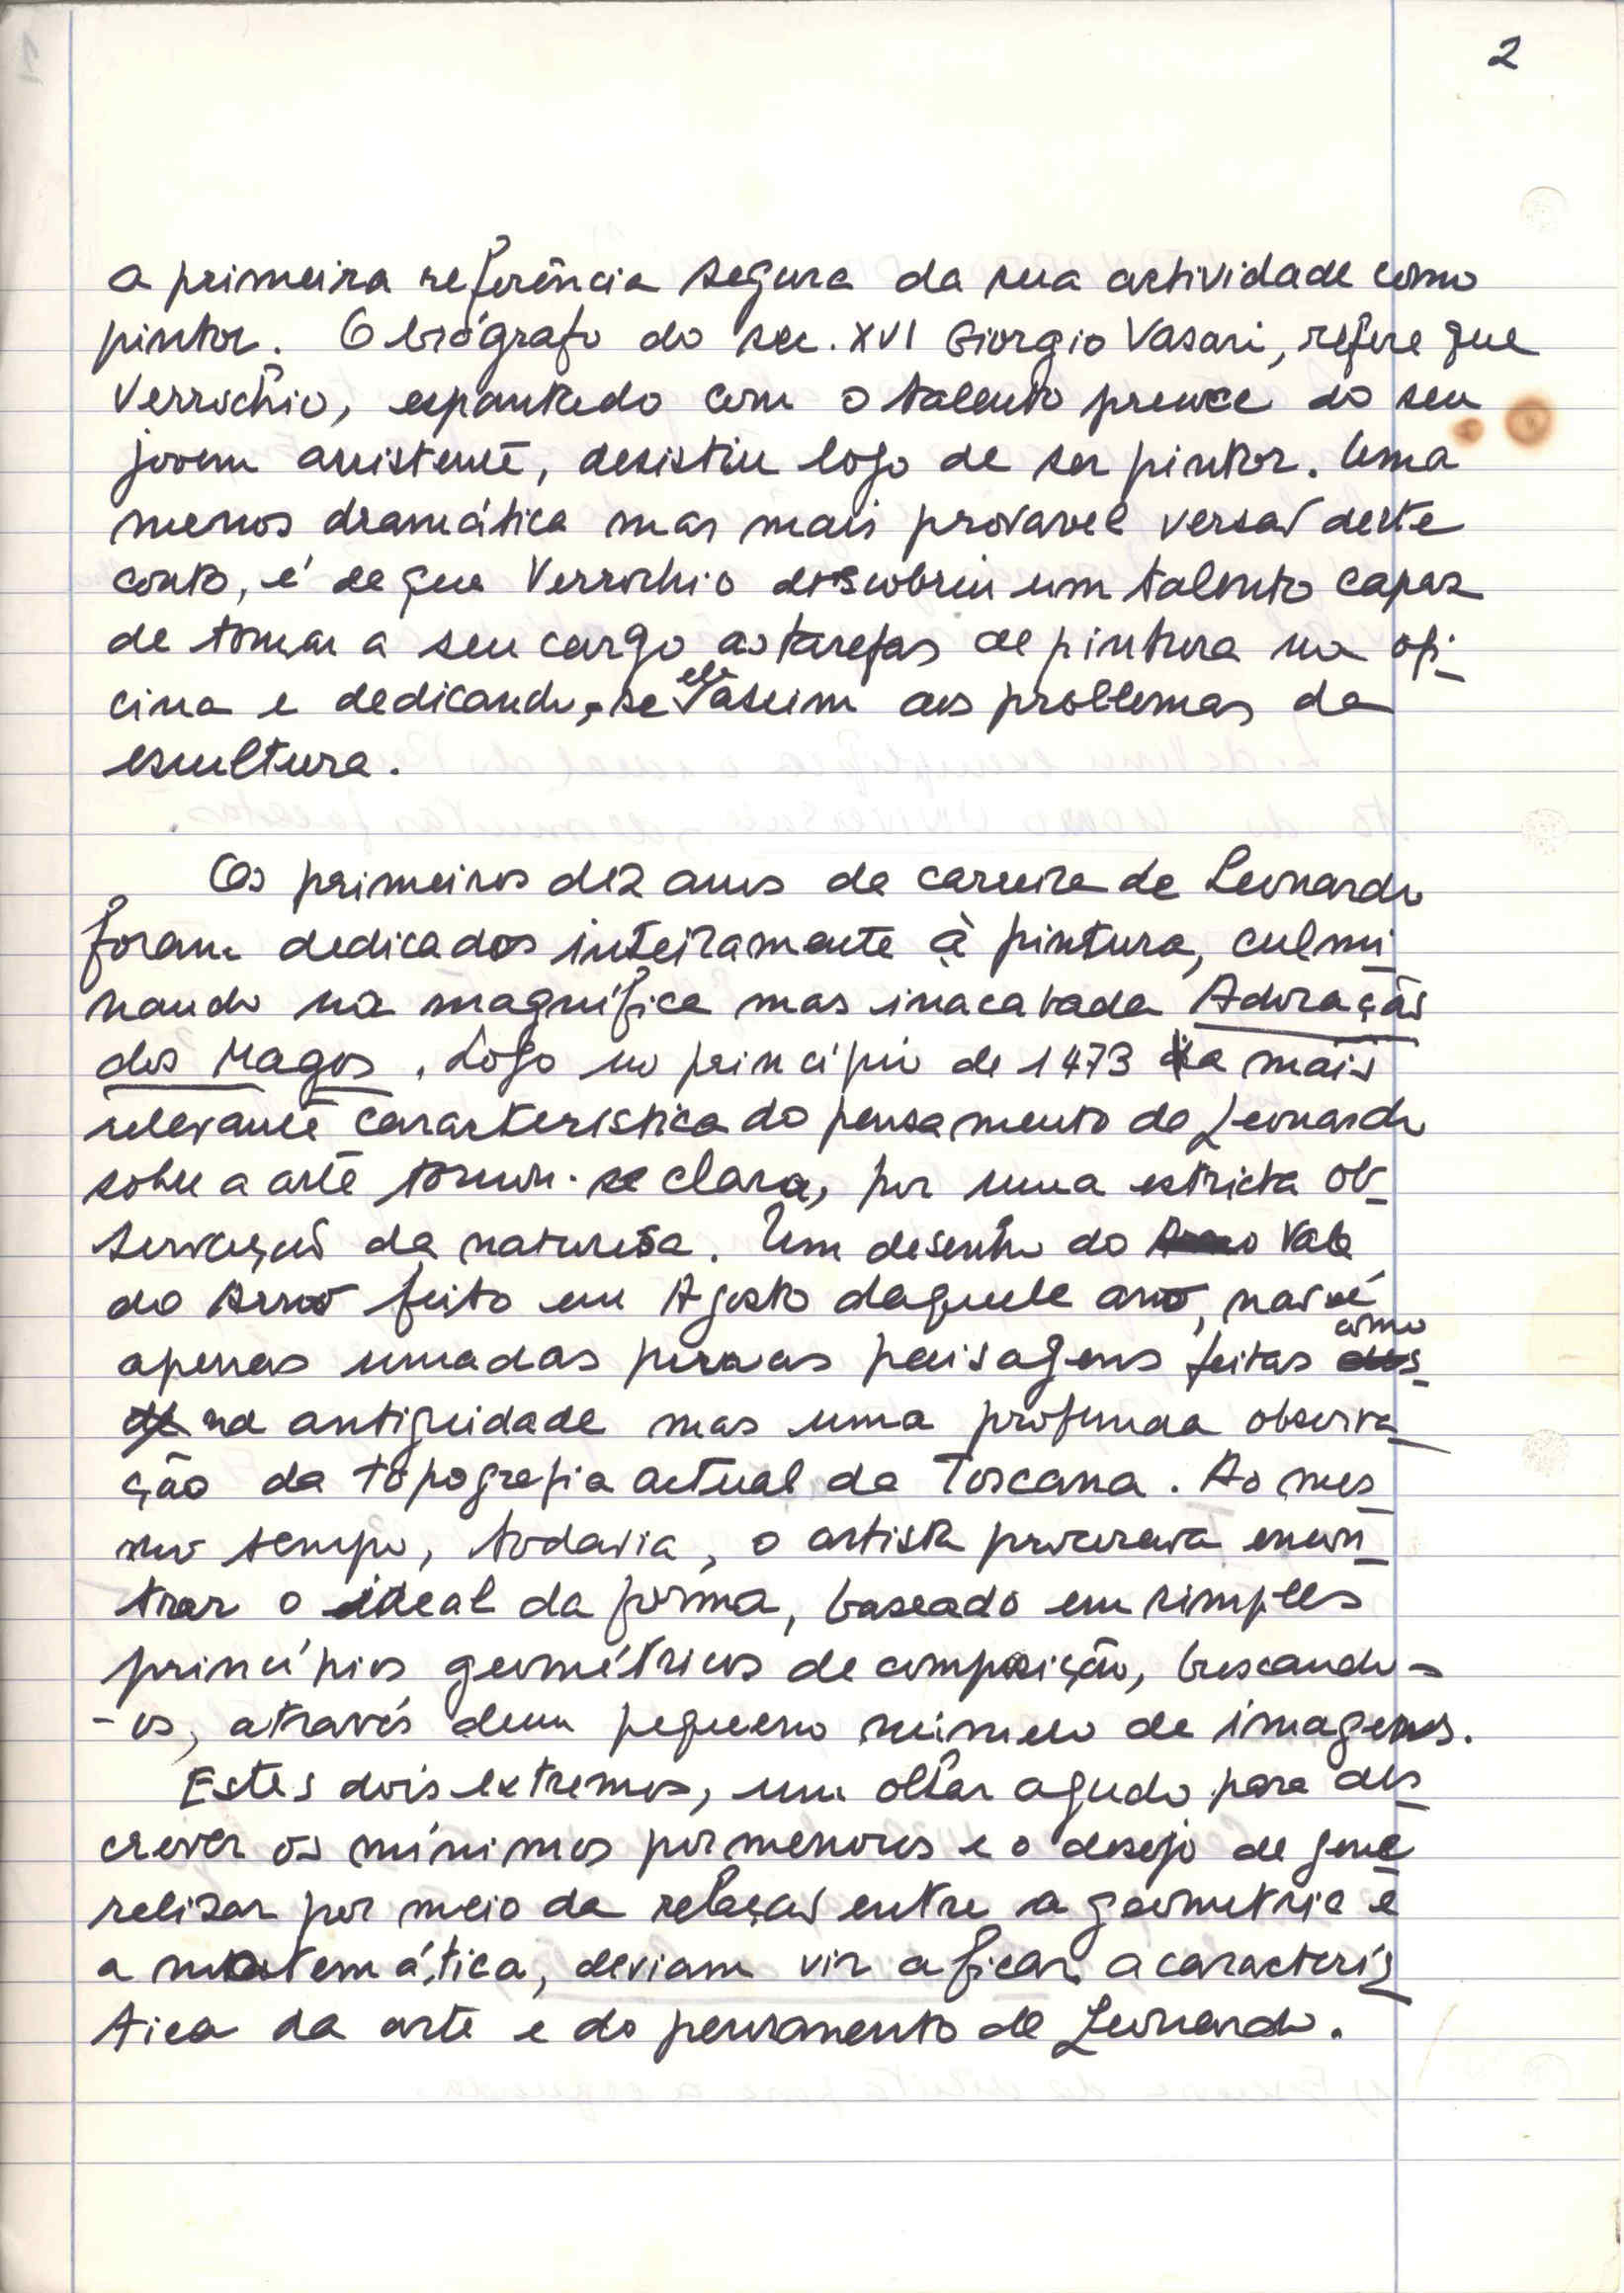 2
a primeira referência segura da sua actividade como
pintor. O biógrafo do sec. XVI Giorgio Vasari, refere que
Verrochio, espantado com o talento precoce do seu
jovem assistente, desistiu logo de ser pintor. Uma
menos dramática mas mais provavel versão deste
conto, é de que Verrochio descobriu um talento capaz
de tomar a seu cargo as tarefas de pintura na ofi-
cina e dedicando-se ele assim aos problemas da
escultura.
Os primeiros dez anos da carreira de Leonardo
foram dedicados inteiramente à pintura, culmi
nando na magnífica mas inacabada Adoração
dos Magos. Logo no princípio de 1473 a mais
relevante caracteristica do pensamento de Leonardo
sobre a arte tornou-se clara, por uma estricta ob-
servação da natureza. Um desenho do Vale
do Arno feito em Agosto daquele ano, não é
apenas uma das paisagens feitas como
na antiguidade mas uma profunda observa
ção da topografia actual da Toscana. Ao mes
mo tempo, todavia, o artista procurava encon
trar o ideal da forma, baseado em simples
princípios geométricos de composição, buscando-
-os, através dum pequeno número de imagens.
Estes dois extremos, um olhar agudo para des
crever os mínimos pormenores e o desejo de gene
ralizar por meio da relação entre a geometria e
a matemática, deviam vir a ficar a caracterís
tica da arte e do pensamento de Leonardo.